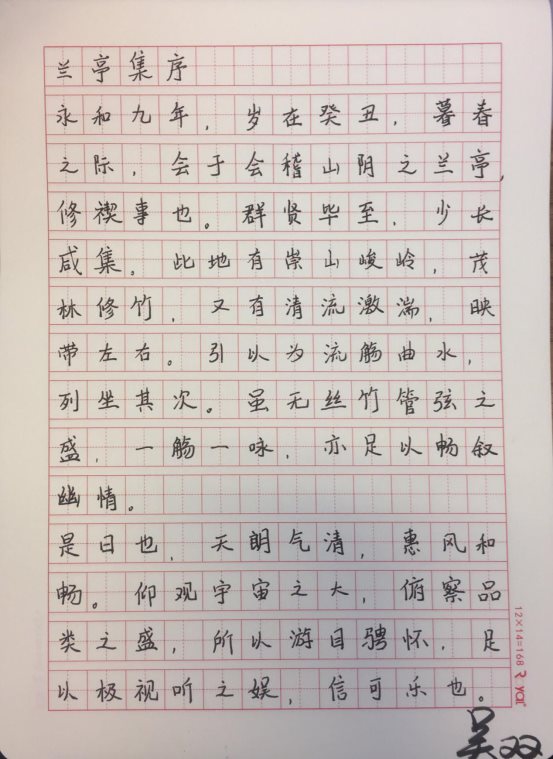 兰亭集序
永和九年，岁在癸丑，暮春
之际，会于会稽山阴之兰亭，
修禊事也。群贤毕至，少长
咸集。此地有崇山峻岭，茂
林修竹，又有清流激湍，映
带左右。引以为流觞曲水，
列坐其次。虽无丝竹管弦之
盛，一觞一咏，亦足以畅叙
幽情。
是日也，天朗气清，惠风和
畅。仰观宇宙之大，俯察品
类之盛，所以游目骋怀，足
以极视听之娱，信可乐也。
12×14=168
吴双